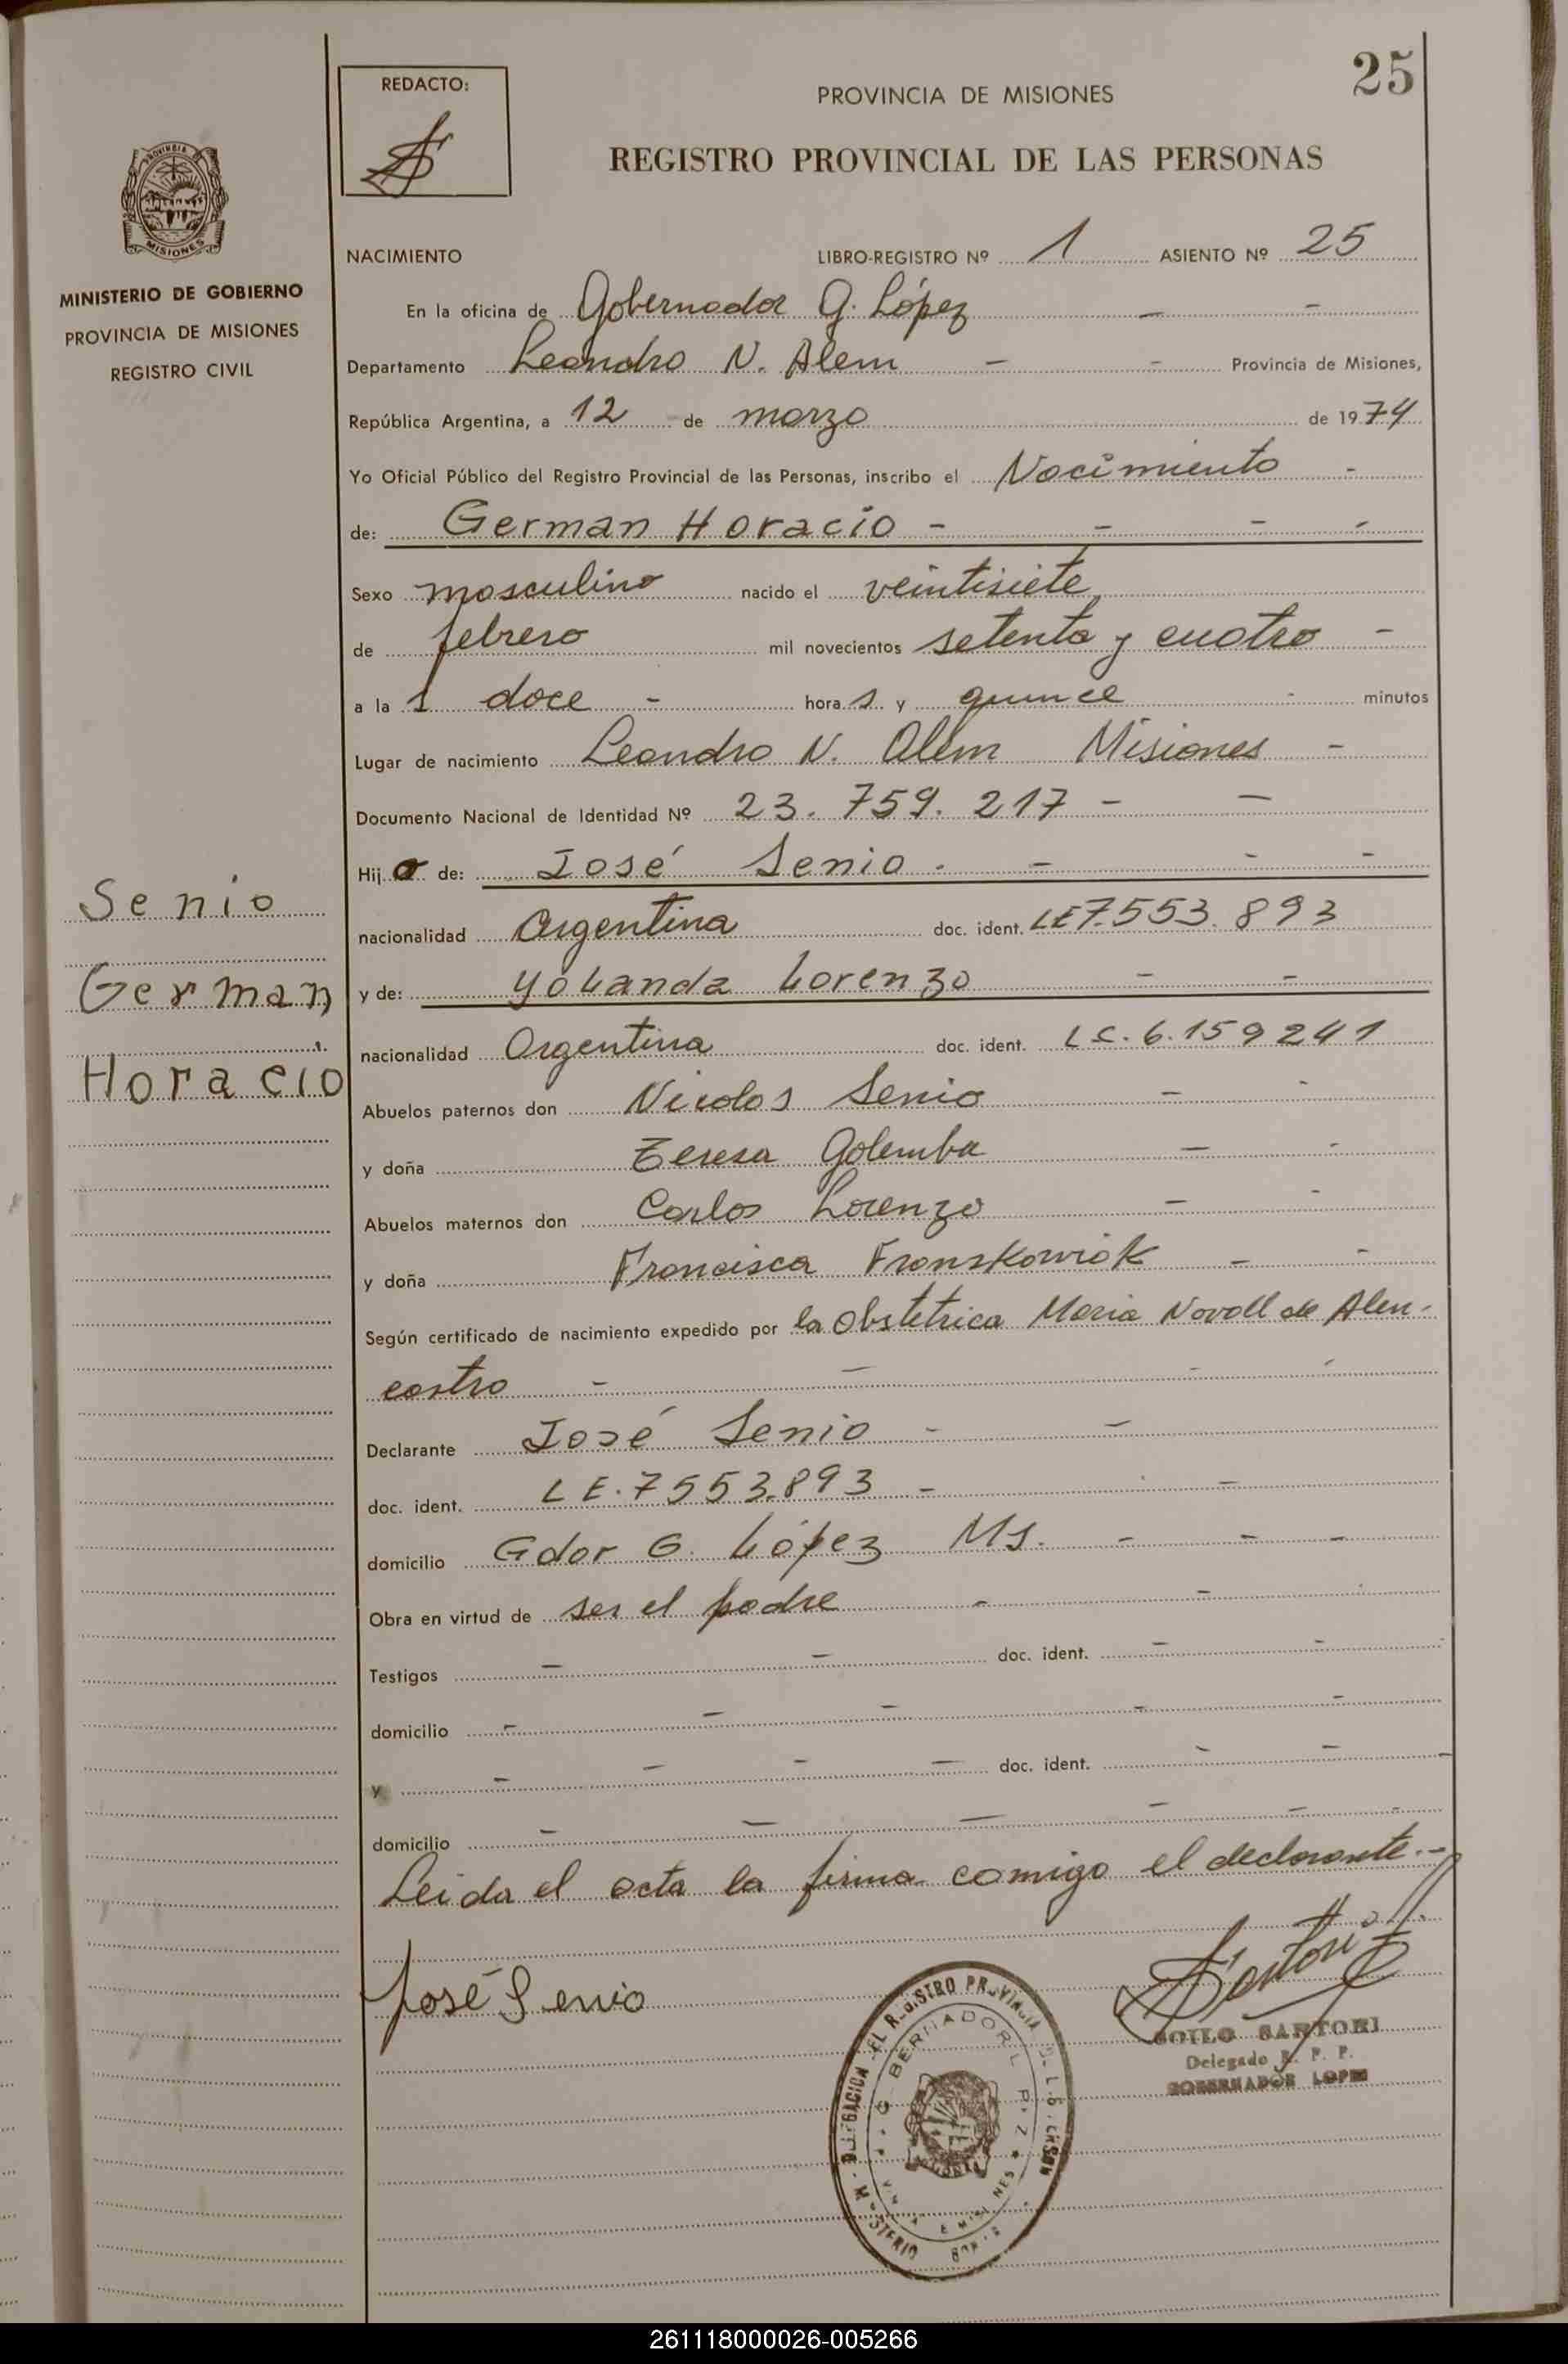 25
REDACTO:
PROVINCIA DE MISIONES
REGISTRO PROVINCIAL DE LAS PERSONAS
PROVINCIA
MISIONES
MINISTERIO DE GOBIERNO
PROVINCIA DE MISIONES
REGISTRO CIVIL
NACIMIENTO LIBRO-REGISTRO Nº 1 ASIENTO Nº 25
En la oficina de Gobernador G. López - -
Departamento Leandro N. Alem - - Provincia de Misiones,
República Argentina, a 12 - de marzo de 1974
Yo Oficial Público del Registro Provincial de las Personas, inscribo el Nacimiento -
de: German Horacio - - - -
Sexo masculino nacido el veintisiete
de febrero mil novecientos setenta y cuatro -
a la s doce - hora s y quince - minutos
Lugar de nacimiento Leandro N. Alem Misiones -
Documento Nacional de Identidad Nº 23.759.217 - -
Hij o de: José Senio . - - -
nacionalidad Argentina doc. ident. LE 7.553.893
y de: Yolanda Lorenzo - -
nacionalidad Argentina doc. ident. LC. 6.159241
Abuelos paternos don Nicolas Senio - -
y doña Teresa Golemba - -
Abuelos maternos don Carlos Lorenzo - -
y doña Francisca Franskowiak - -
Según certificado de nacimiento expedido por la Obstetrica Maria Novoll de Alen-
castro - - - -
Declarante José Senio - -
doc. ident. LE. 7553.893 - -
domicilio Gdor G. López Ms. - - -
Obra en virtud de ser el padre - -
Testigos - - doc. ident. - -
domicilio - - - - -
y - - - - doc. ident. - -
domicilio - - - - - -
Leida el acta la firma comigo el declarante.-
Senio
German
Horacio
José Senio
Sartori
SOILO SARTORI
Delegado R. P. P.
GOBERNADOR LOPEZ
261118000026-005266